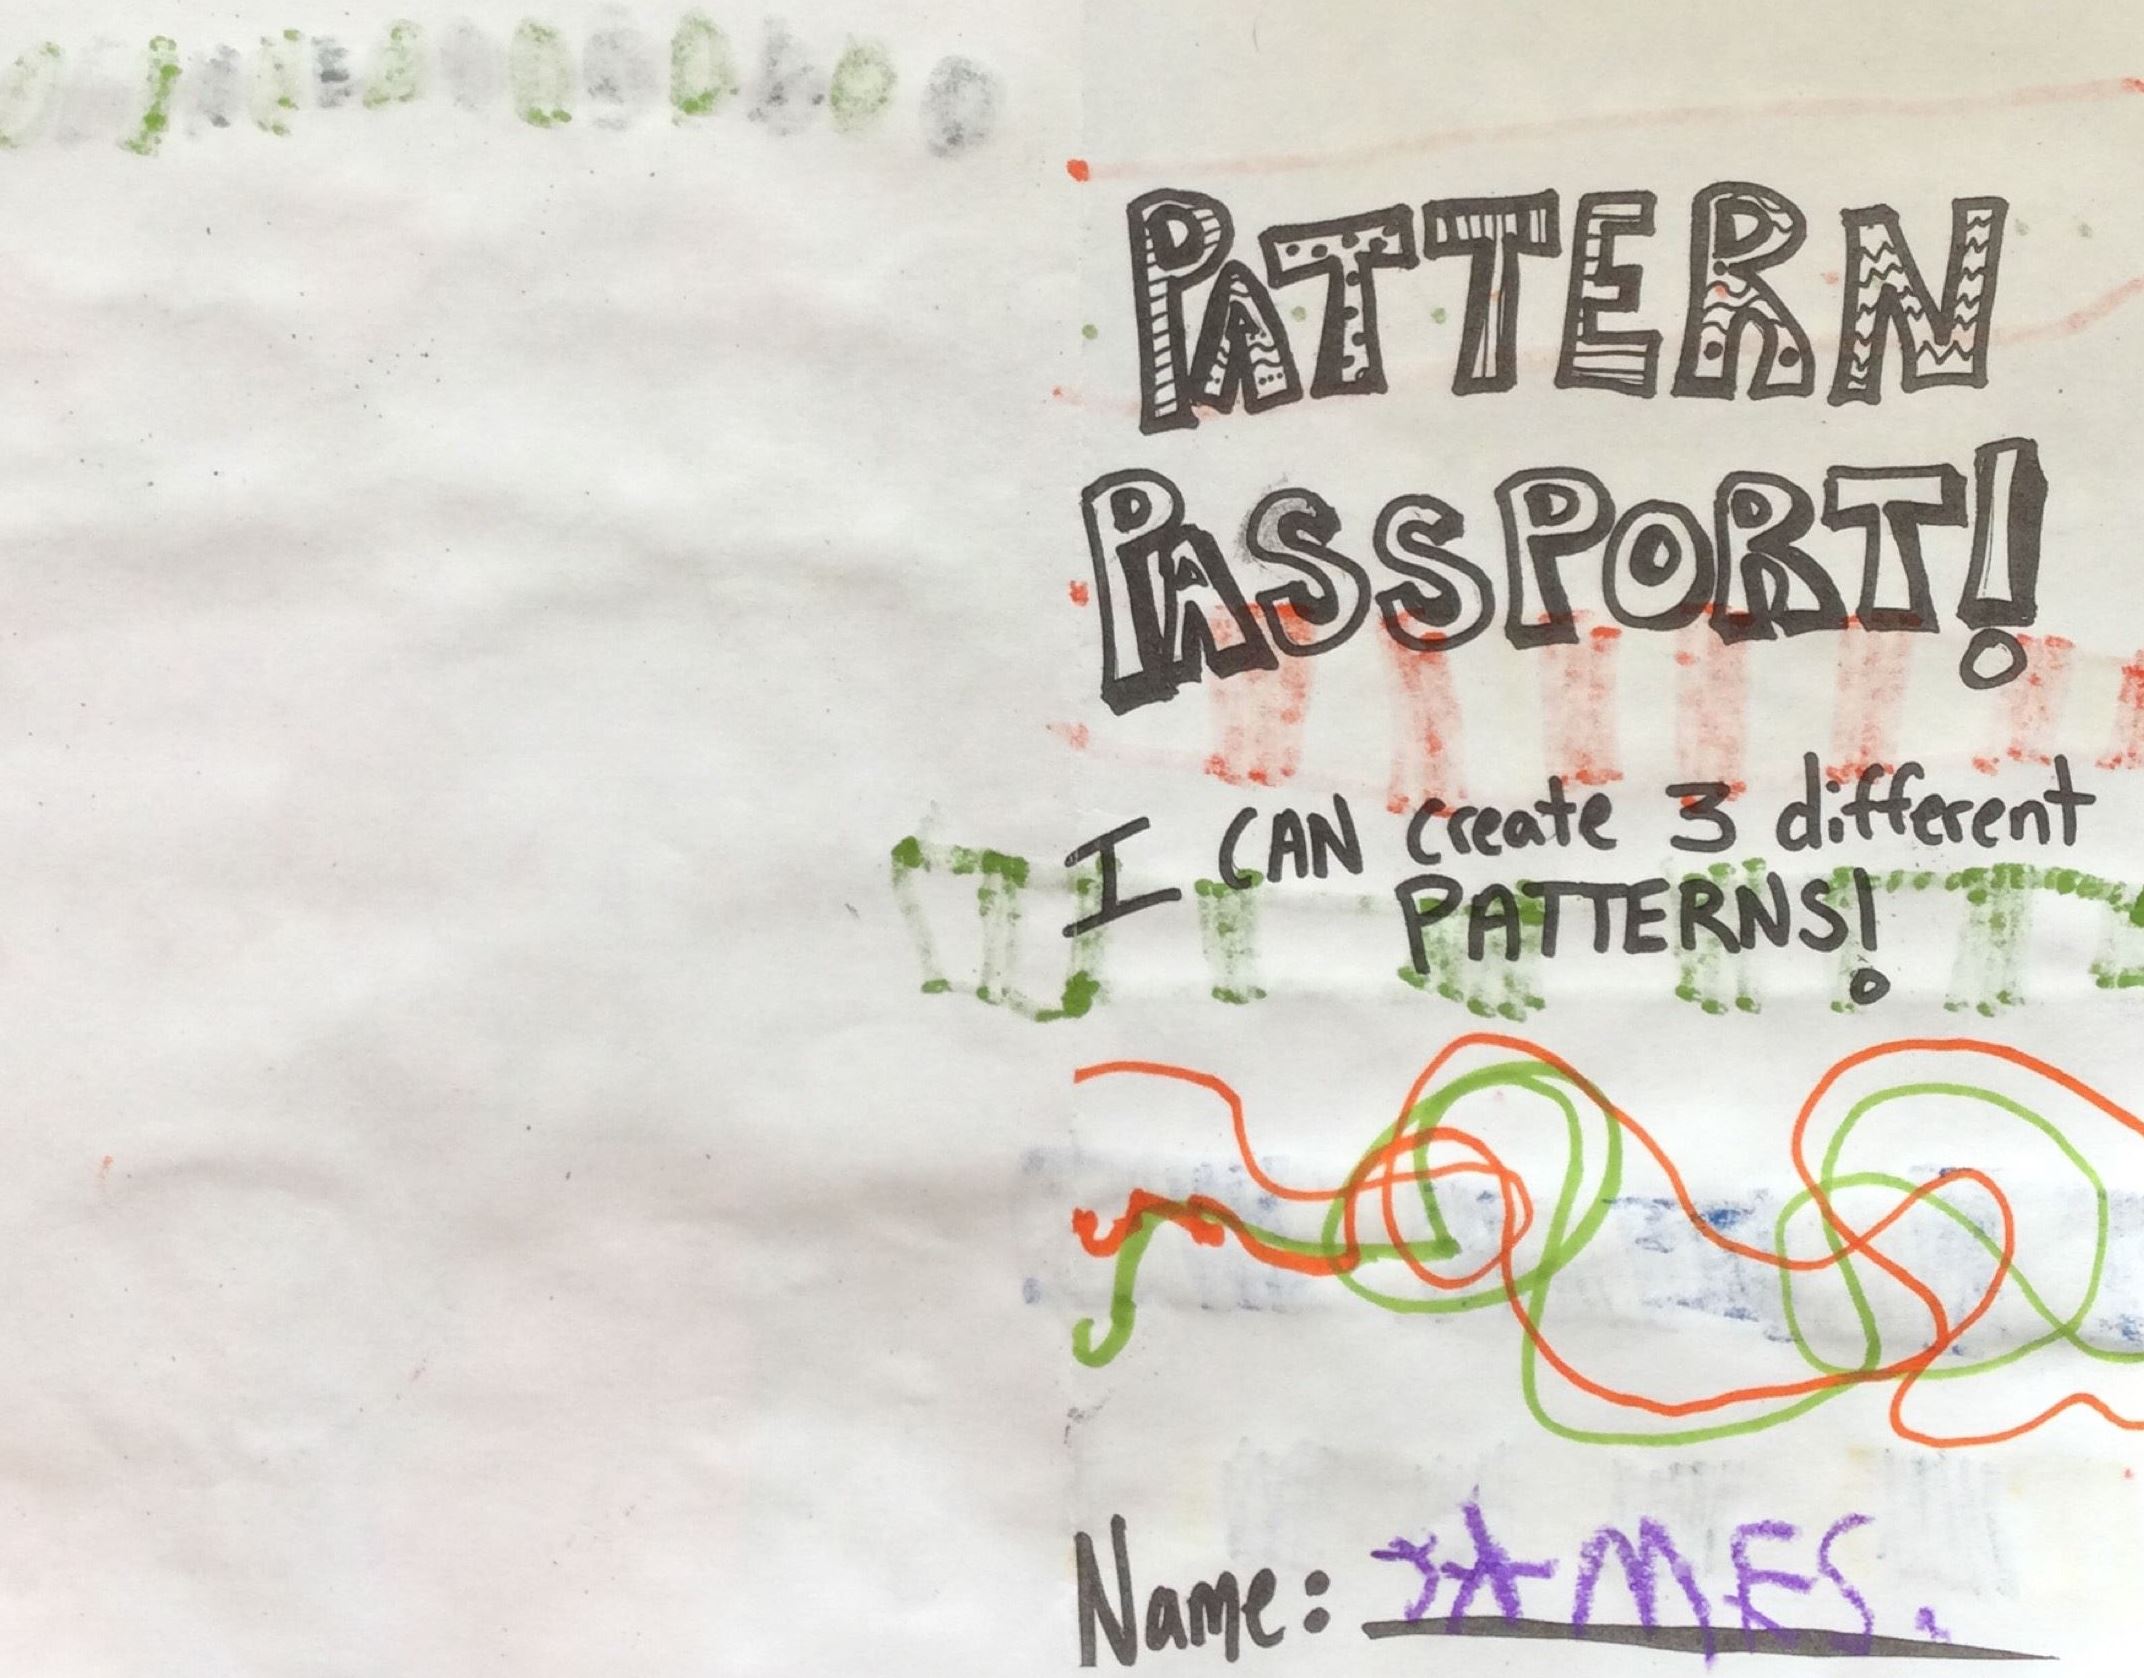 PATTERN
PASSPORT!
I CAN create 3 different
PATTERNS!
Name: JAMES.